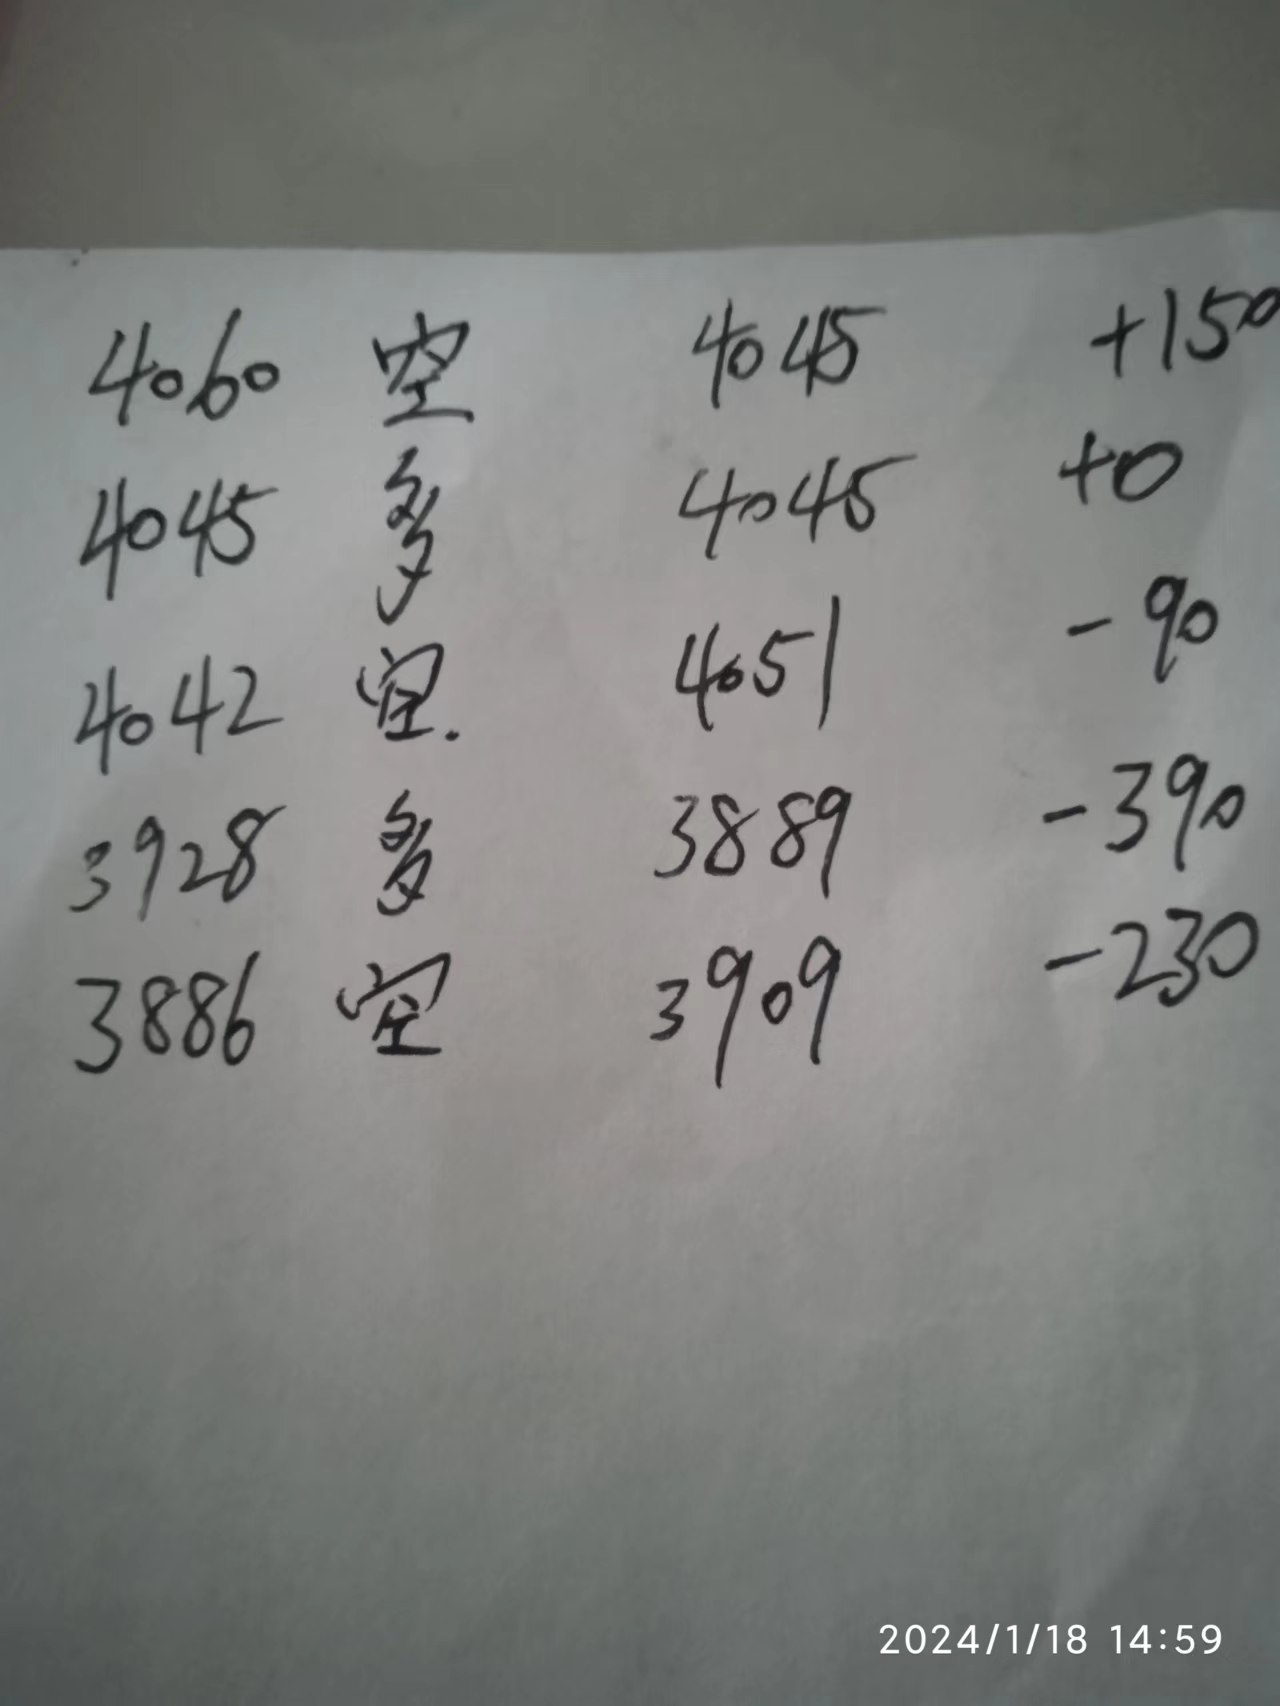 4060 空 4045 +150
4045 多 4045 +0
4042 空. 4051 -90
3928 多 3889 -390
3886 空 3909 -230
2024/1/18 14:59